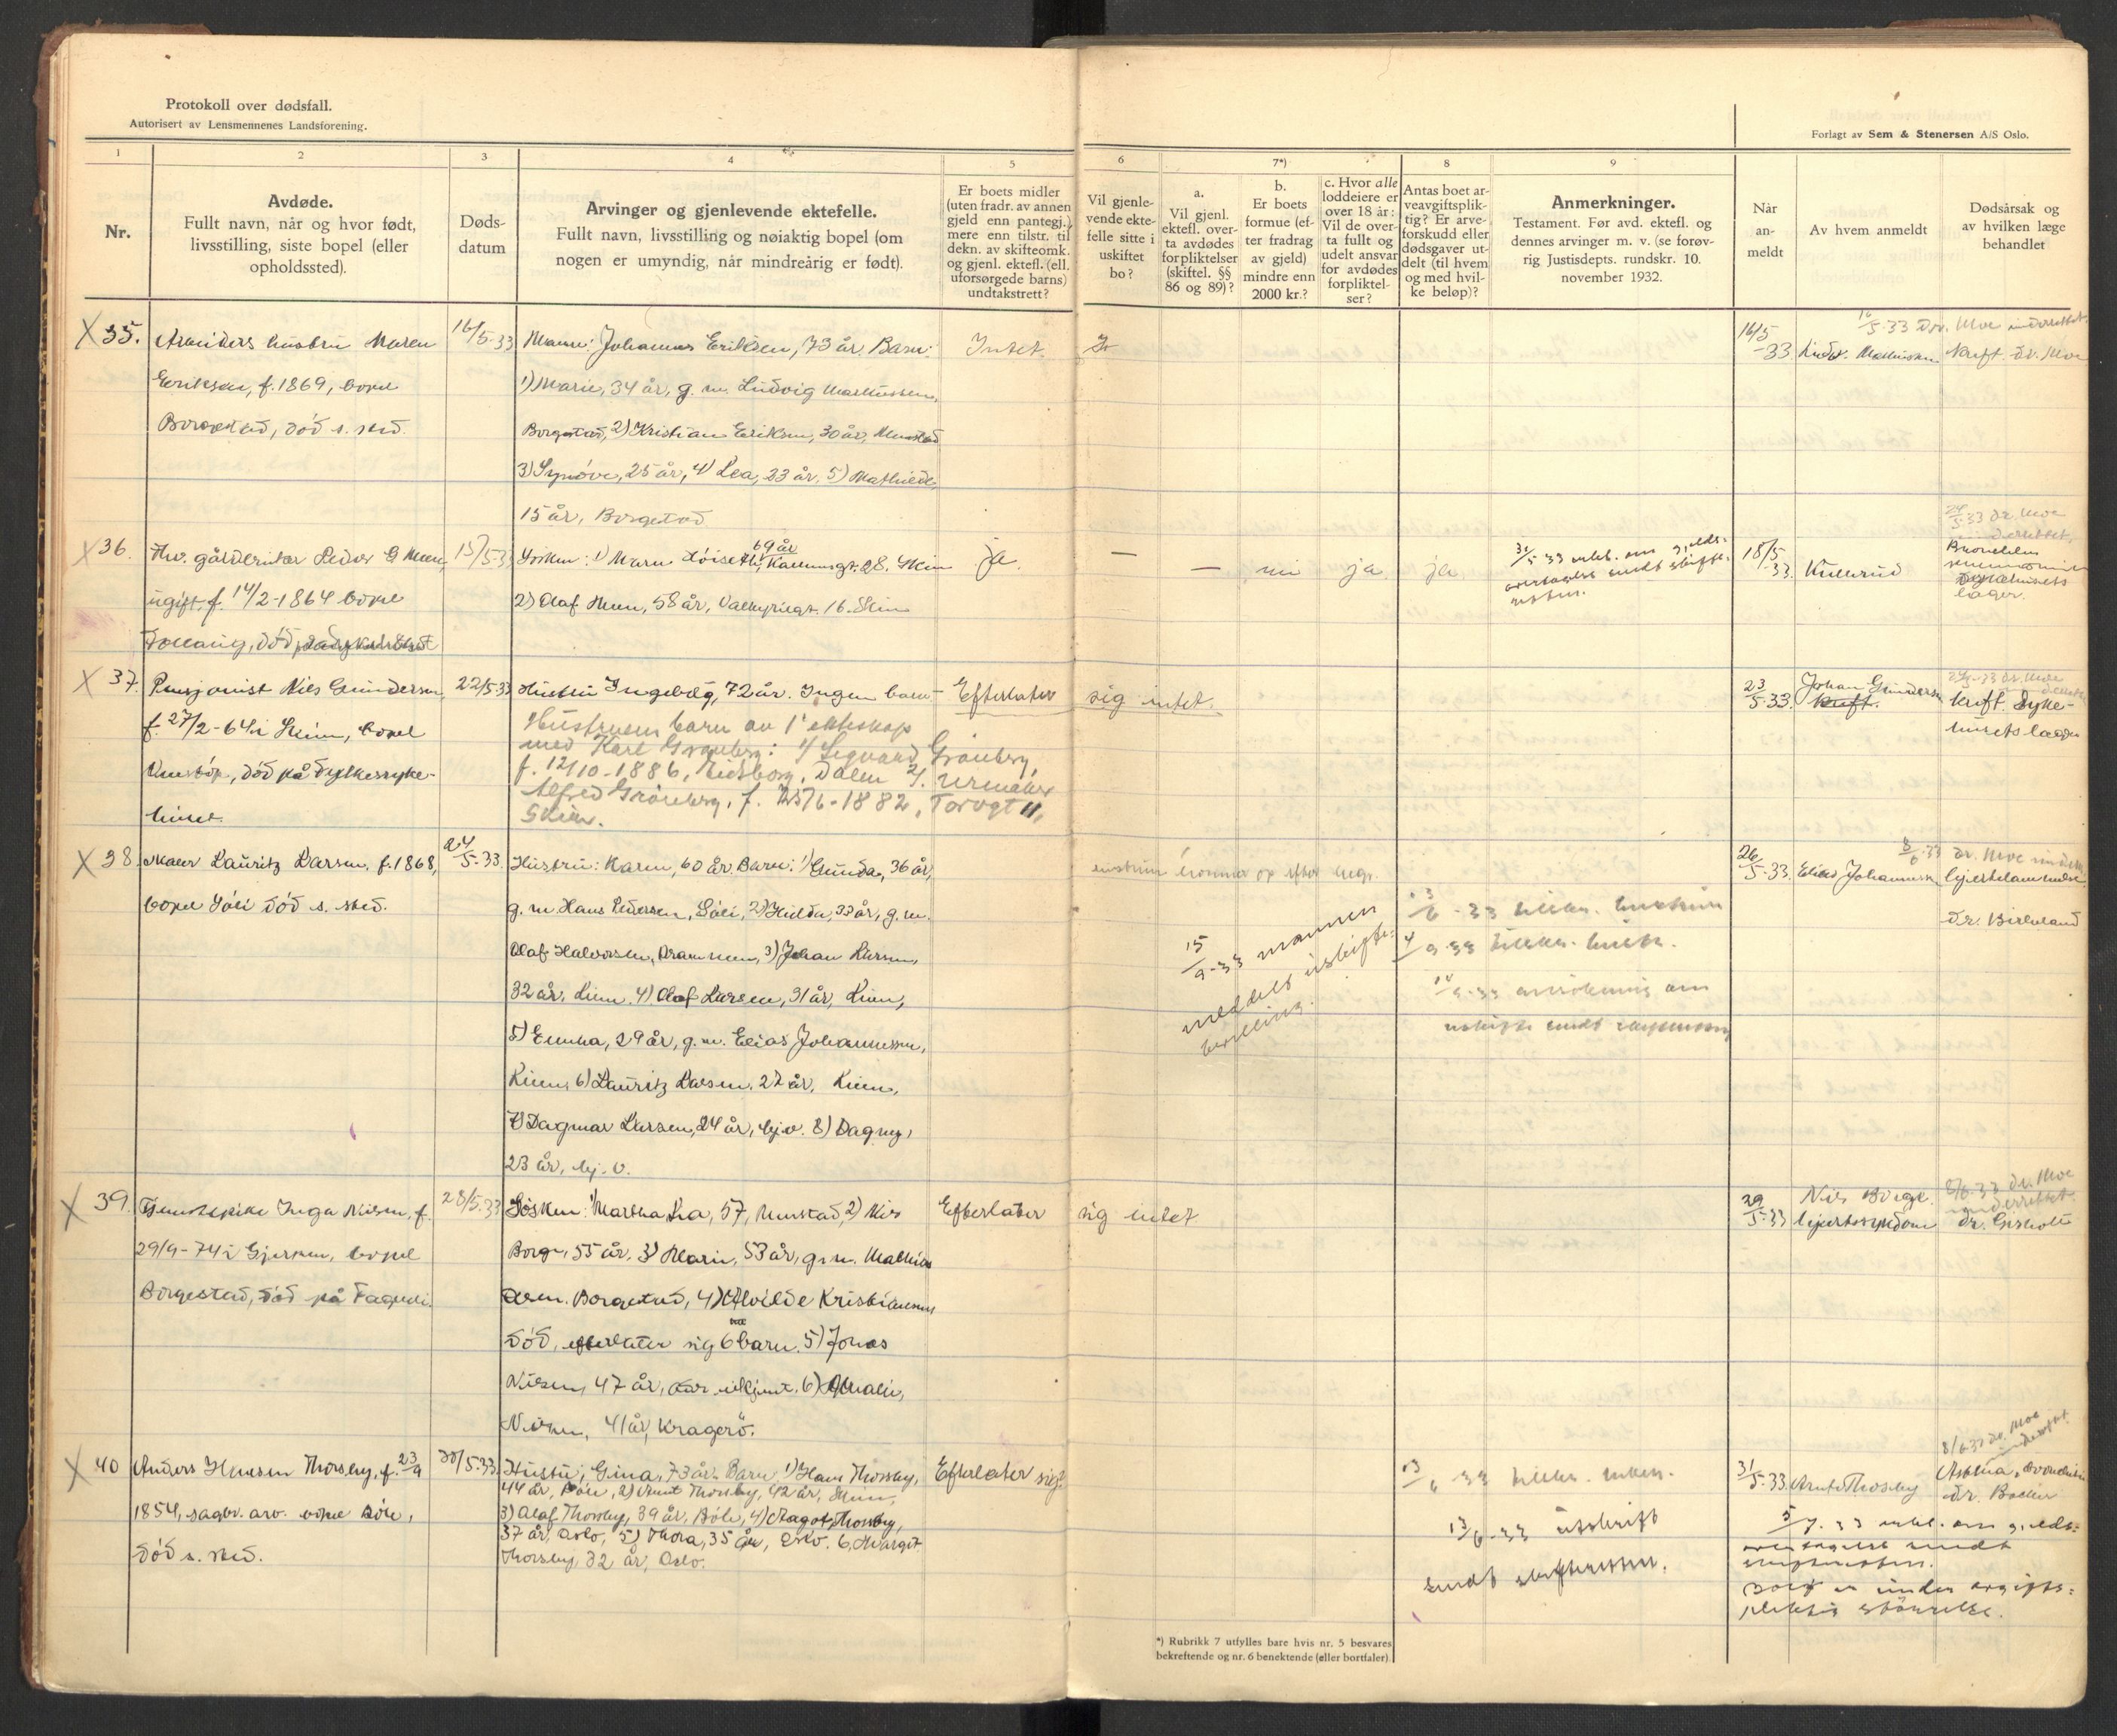 Protokoll over dødsfall.
Autorisert av Lensmennenes Landsforening.
Forlagt av Sem & Stenersen A/S Oslo.
1
2
3
4
5
6
7*)
8
9
Nr.
Avdøde.
Fullt navn, når og hvor født,
livsstilling, siste bopel (eller
opholdssted).
Døds-
datum
Arvinger og gjenlevende ektefelle.
Fullt navn, livsstilling og nøiaktig bopel (om
nogen er umyndig, når mindreårig er født).
Er boets midler
(uten fradr. av annen
gjeld enn pantegj.)
mere enn tilstr. til
dekn. av skifteomk.
og gjenl. ektefl. (ell.
uforsørgede barns)
undtakstrett?
Vil gjenle-
vende ekte-
felle sitte i
uskiftet
bo?
a.
Vil gjenl.
ektefl. over-
ta avdødes
forpliktelser
(skiftel. §§
86 og 89)?
b.
Er boets
formue (ef-
ter fradrag
av gjeld)
mindre enn
2000 kr.?
c. Hvor alle
loddeiere er
over 18 år:
Vil de over-
ta fullt og
udelt ansvar
for avdødes
forpliktel-
ser?
Antas boet ar-
veavgiftsplik-
tig? Er arve-
forskudd eller
dødsgaver ut-
delt (til hvem
og med hvil-
ke beløp)?
Anmerkninger.
Testament. Før avd. ektefl. og
dennes arvinger m. v. (se forøv-
rig Justisdepts. rundskr. 10.
november 1932.
Når
an-
meldt
Av hvem anmeldt
Dødsårsak og
av hvilken læge
behandlet
X 35. Arbeiders hustru Maren
Eriksen, f. 1869, bopel
Borgestad, død s. sted.
16/5-33
Mann: Johannes Eriksen, 73 år. Barn:
1) Marie, 34 år, g. m. Ludvig Mathissen,
Borgestad, 2) Kristian Eriksen, 30 år, Menstad
3) Synøve, 25 år, 4) Lea, 23 år, 5) Mathilde,
15 år, Borgestad
Intet.
16/5
-33
Ludv. Mathisen
5-33 Dr. Moe underrettet.
Kreft. Dr. Moe
X 36. Fhv. gårdbruker Peder G Moen,
ugift, f. 14/2-1864 bopel
17/5-33
Søsken: 1) Maren Løiseth, 69 år
2) Olaf Moen, 58 år, Valkyriegt. 16. Skien
ja.
—
—
nei
ja
ja
5-33 medd. om gjelds-
overtagelse sendt skifte-
retten.
18/5
-33.
Kullerud
5-33 dr. Moe
underrettet.
sykehusets
læger.
X 37. Pensjonist Nils Gundersen,
f. 27/2-64 i Skien, bopel
død på Fylkessyke-
huset.
22/5-33
Hustru Ingeborg, 72 år. Ingen barn.
Hustruens barn av 1' ekteskap
med Karl Grønberg: 1) Sigvard Grønberg,
f. 12/10-1886, Eidsborg, Dalen 2) urmaker
Alfred Grønberg, f. 25/6-1882, Torvgt 11,
Skien.
Efterlater
sig intet.
23
5-33.
Johan Gundersen
Kreft.
5-33 dr. Moe
Kreft. Syke-
husets læger
X 38. Maler Lauritz Larsen, f. 1868,
bopel Sóli død s. sted.
24
5-33.
Hustru: Karen, 60 år. Barn: 1) Gunda, 36 år,
g. m. Hans Pedersen, Sóli, 2) Hulda, 33 år, g. m.
Olaf Halvorsen, Drammen, 3) Johan Larsen,
32 år, Lien, 4) Olaf Larsen, 31 år, Lien,
5) Emma, 29 år, g. m. Elias Johannessen,
6) Lauritz Larsen, 27 år,
7) Dagmar Larsen, 24 år, hj. v. 8) Dagny,
23 år, hj. v.
hustrun kommer op efter
15
9-33 mannen
meddelt uskifte-
bevilling.
13
6-33 tilkr. hustrun
4
9-33 tilkr. hustr.
9-33 ansökning om
uskifte sendt skifteretten
26
5-33.
Elias Johannessen
8
6-33
dr. Moe underr.
hjertelammelse
dr. Birkeland
X 39. Tjenestepike Inga Nilsen, f.
29/9-74 i Gjerpen, bopel
Borgestad, død på Fagerli.
28/5-33
Søsken: 1) Martha Lia, 57, Menstad, 2) Nils
Borge, 55 år, 3) Marie, 53 år, g. m. Mathias
Olsen, Borgestad, 4) Alvilde Kristiansen
død, efterlater sig 6 barn. 5) Jonas
Nilsen, 47 år, adr. ukjent. 6) Amalie,
Nilsen, 41 år, Kragerø.
Efterlater
sig intet
29
5-33
Nils Borge.
hjertesygdom
8/6-33 dr. Moe
underrettet.
dr. Gisholt
X 40 Anders Hansen Thorsby, f. 23/9
1854, sagbr. arb. bopel Bóle,
død s. sted.
30/5-33.
Hustru; Gina, 73 år. Barn 1) Hans Thorsby,
44 år, Bóle, 2) Arnt Thorsby, 42 år, Skien,
3) Olaf Thorsby, 39 år, Bóle, 4) Ragot Thorsby,
37 år, Oslo, 5) Thora, 35 år, Oslo. 6. Margit
Thorsby, 32 år, Oslo.
Efterlater sig
13
6-33 utskrift
sendt skifteretten.
31
5-33.
Arnt Thorsby
8/6-33 dr. Moe
underrettet.
dr. Backer
5
7-33 medd. om gjelds-
overtagelse sendt
skifteretten.
Boet er under avgifts-
pliktig størrelse.
*) Rubrikk 7 utfylles bare hvis nr. 5 besvares
bekreftende og nr. 6 benektende (eller bortfaler).